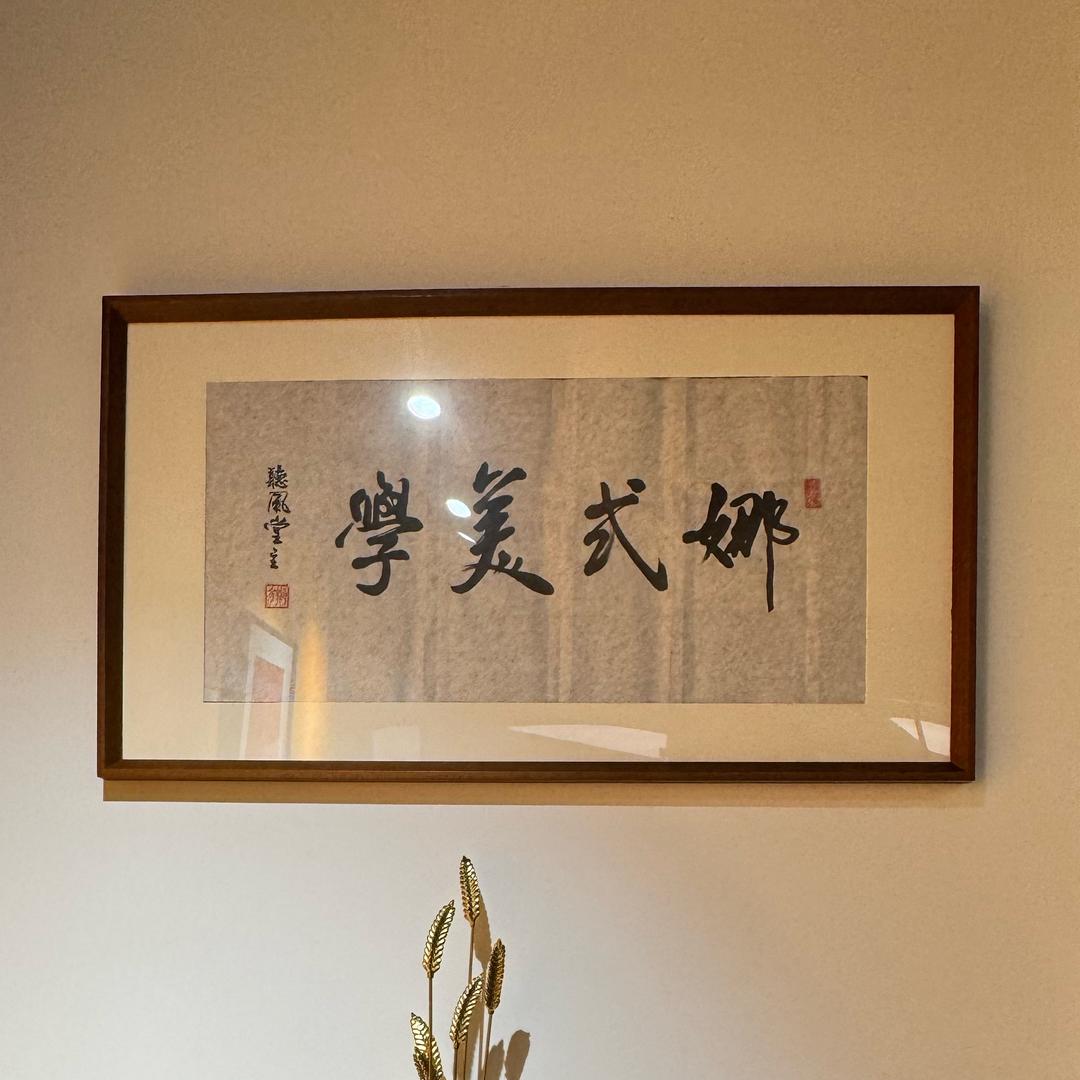 娜式美學
聽風堂主